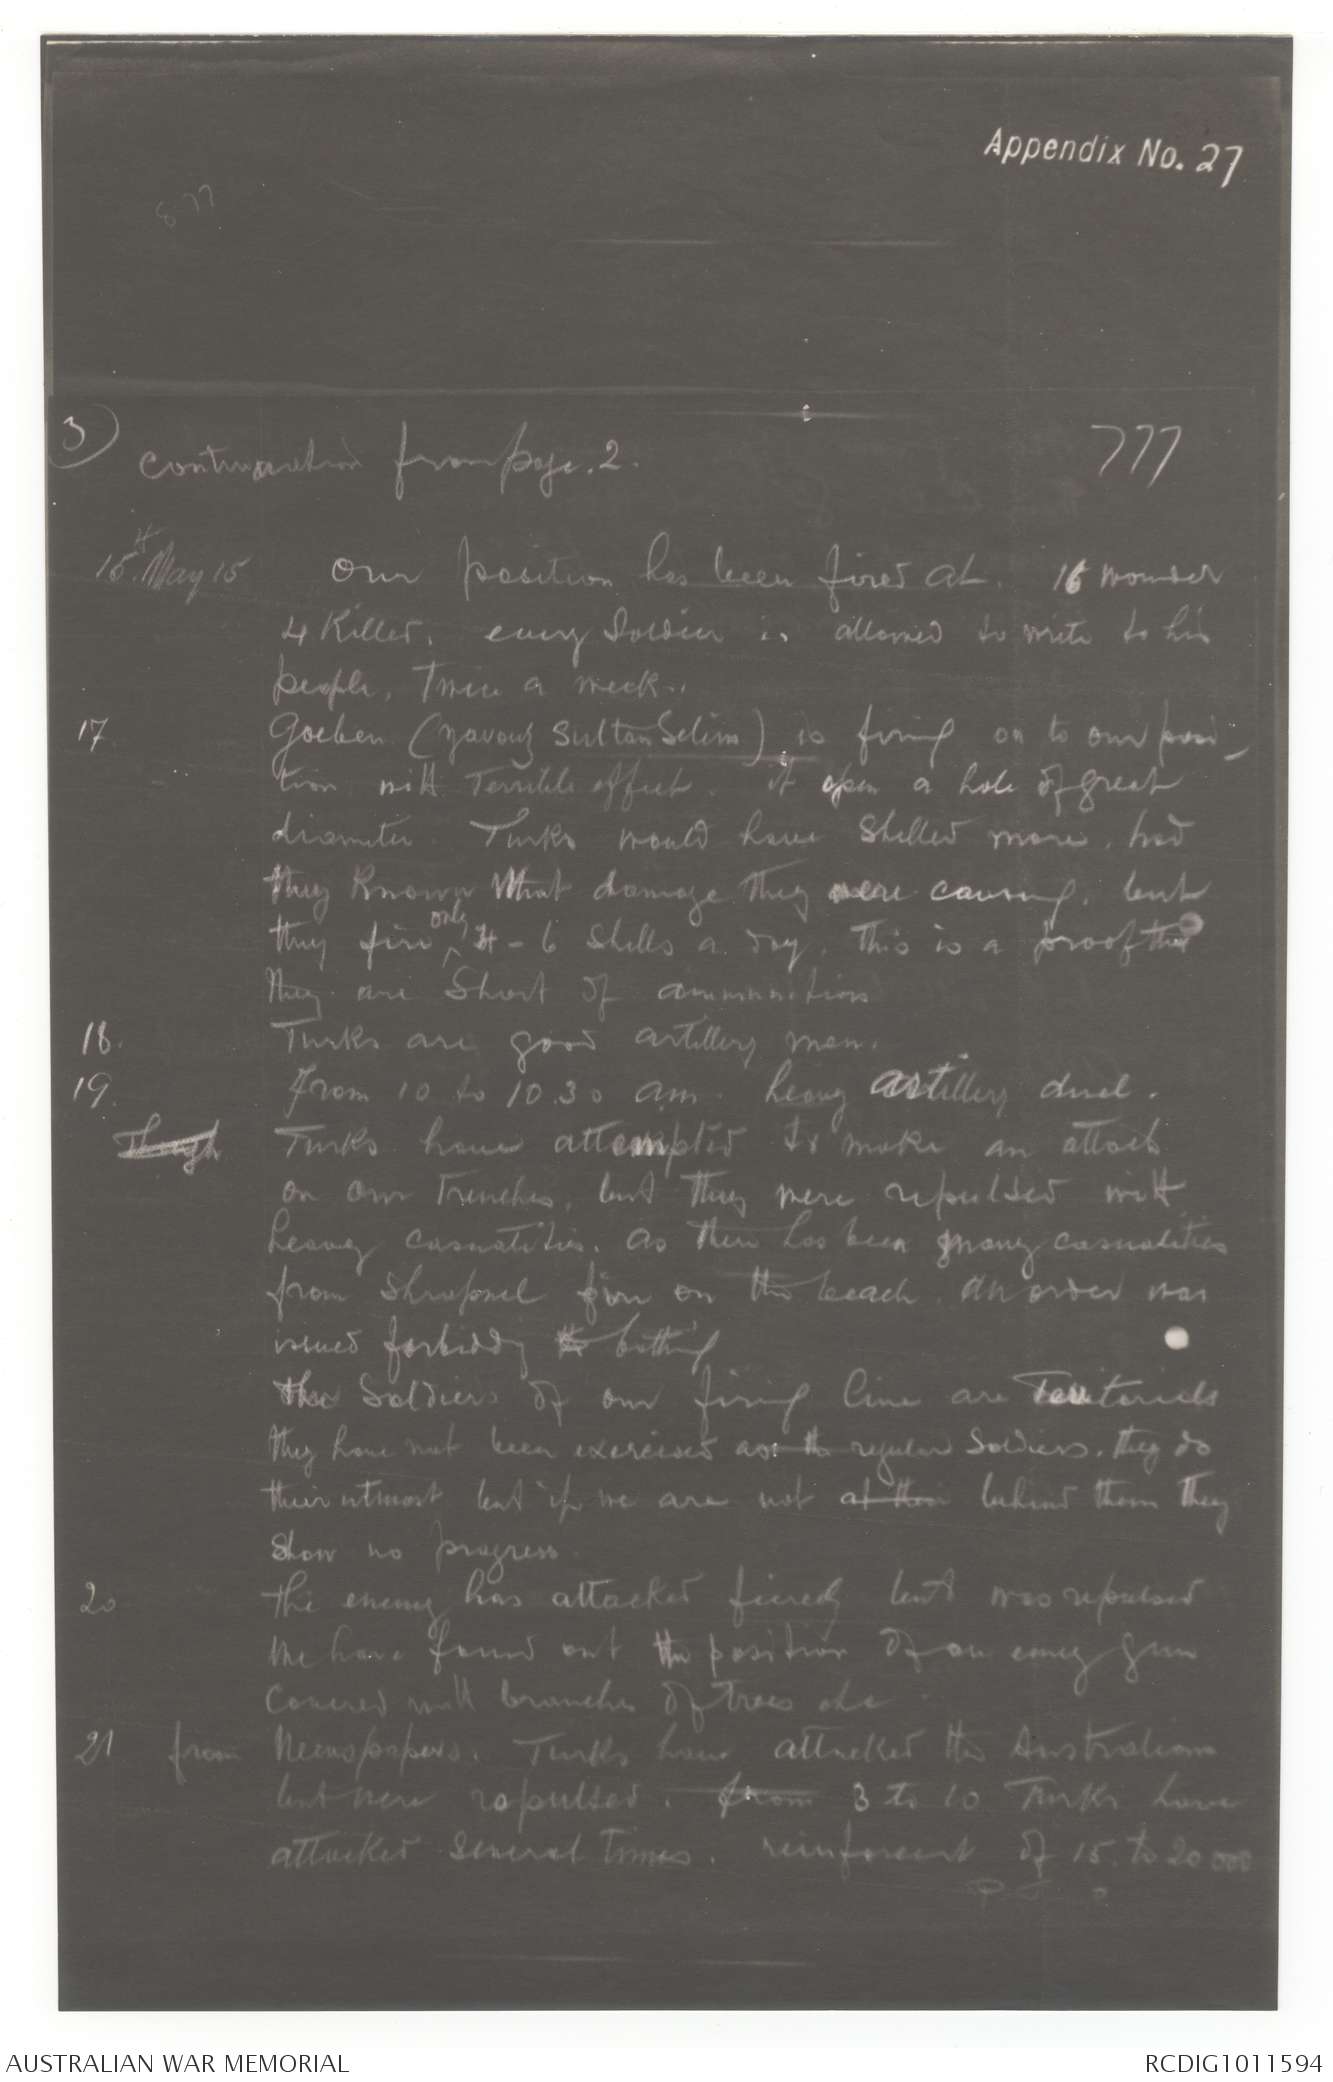 Appendix No. 27
8.77
3) continuation from page. 2.
777
15th May 15 Our position has been fired at. 16 wounded
4 Killed. every Soldier is allowed to write to his
people, Twice a week.
17 Goeben (Yavouz Sultan Selim) is firing on to our posi-
tion with Terrible effect. it open a hole of great
diameter. Turks would have Shelled more, had
they Known What damage they were causing, but
they fire only 4 - 6 Shells a day. This is a proof that
they are Short of ammunition
18. Turks are good artillery men.
19. From 10 to 10.30 am. heavy artillery duel.
Though Turks have attempted to make an attack
on our Trenches, but they were repulsed with
heavy casualities. As there has been many casualities
from Shrapnel fire on the beach. An order was
issued forbiddg the bathing
the Soldiers of our firing line are Territorials
they have not been exercised as the regular Soldiers. they do
their utmost but if we are not at their behind them they
show no progress.
20 The enemy has attacked fiercely but was repulsed
We have found out the position of an enemy gun
covered with branches of trees etc
21 from Newspapers. Turks have attacked the Australians
but were repulsed. from 3 to 10 Turks have
attacked several times. reinforcent of 15. to 20 000
P T O
AUSTRALIAN WAR MEMORIAL
RCDIG1011594